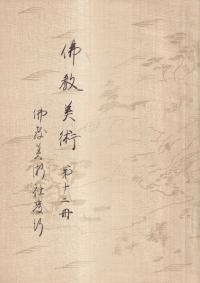 佛教美術 第十二冊
佛教美術社發行